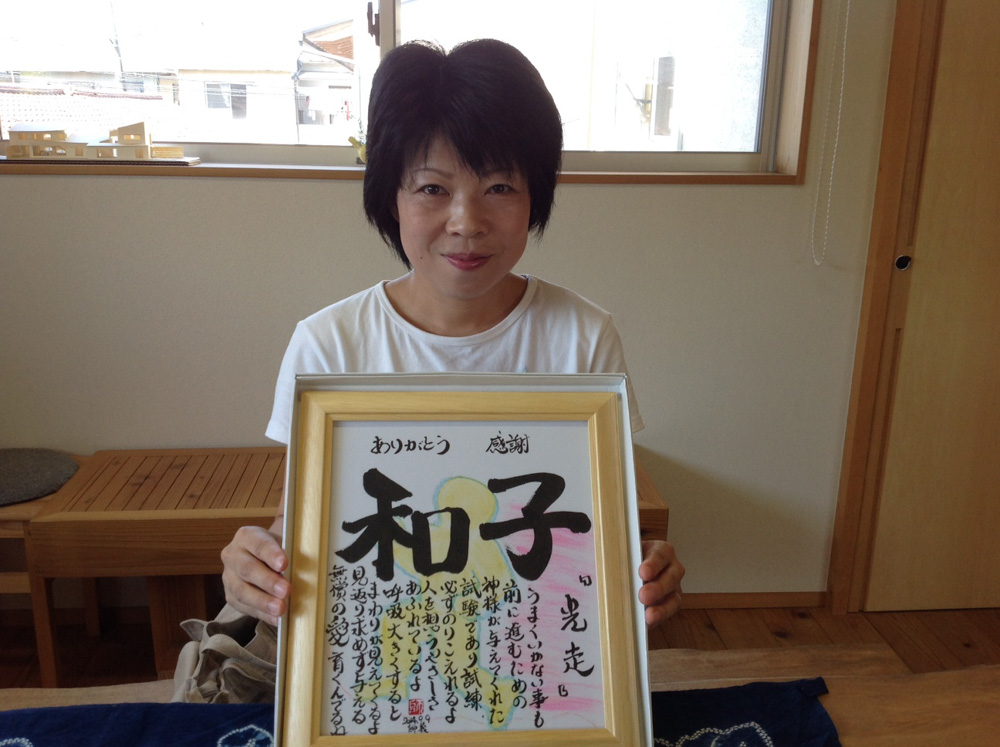 ありがとう 感謝
和子
『光走』
うまくいかない事も
前に進むための
神様が与えてくれた
試験であり試練
必ずのりこえれるよ
人を想うやさしさ
あふれているよ
呼吸大きくすると
まわりが見えてくるよ
見返り求めず与える
無償の愛育くんでるね